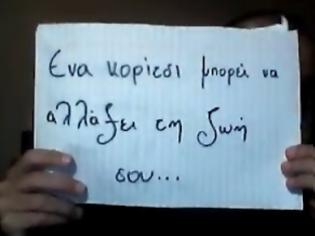 Ενα κορίτσι μπορεί να
αλλάξει τη ζωή
σου...